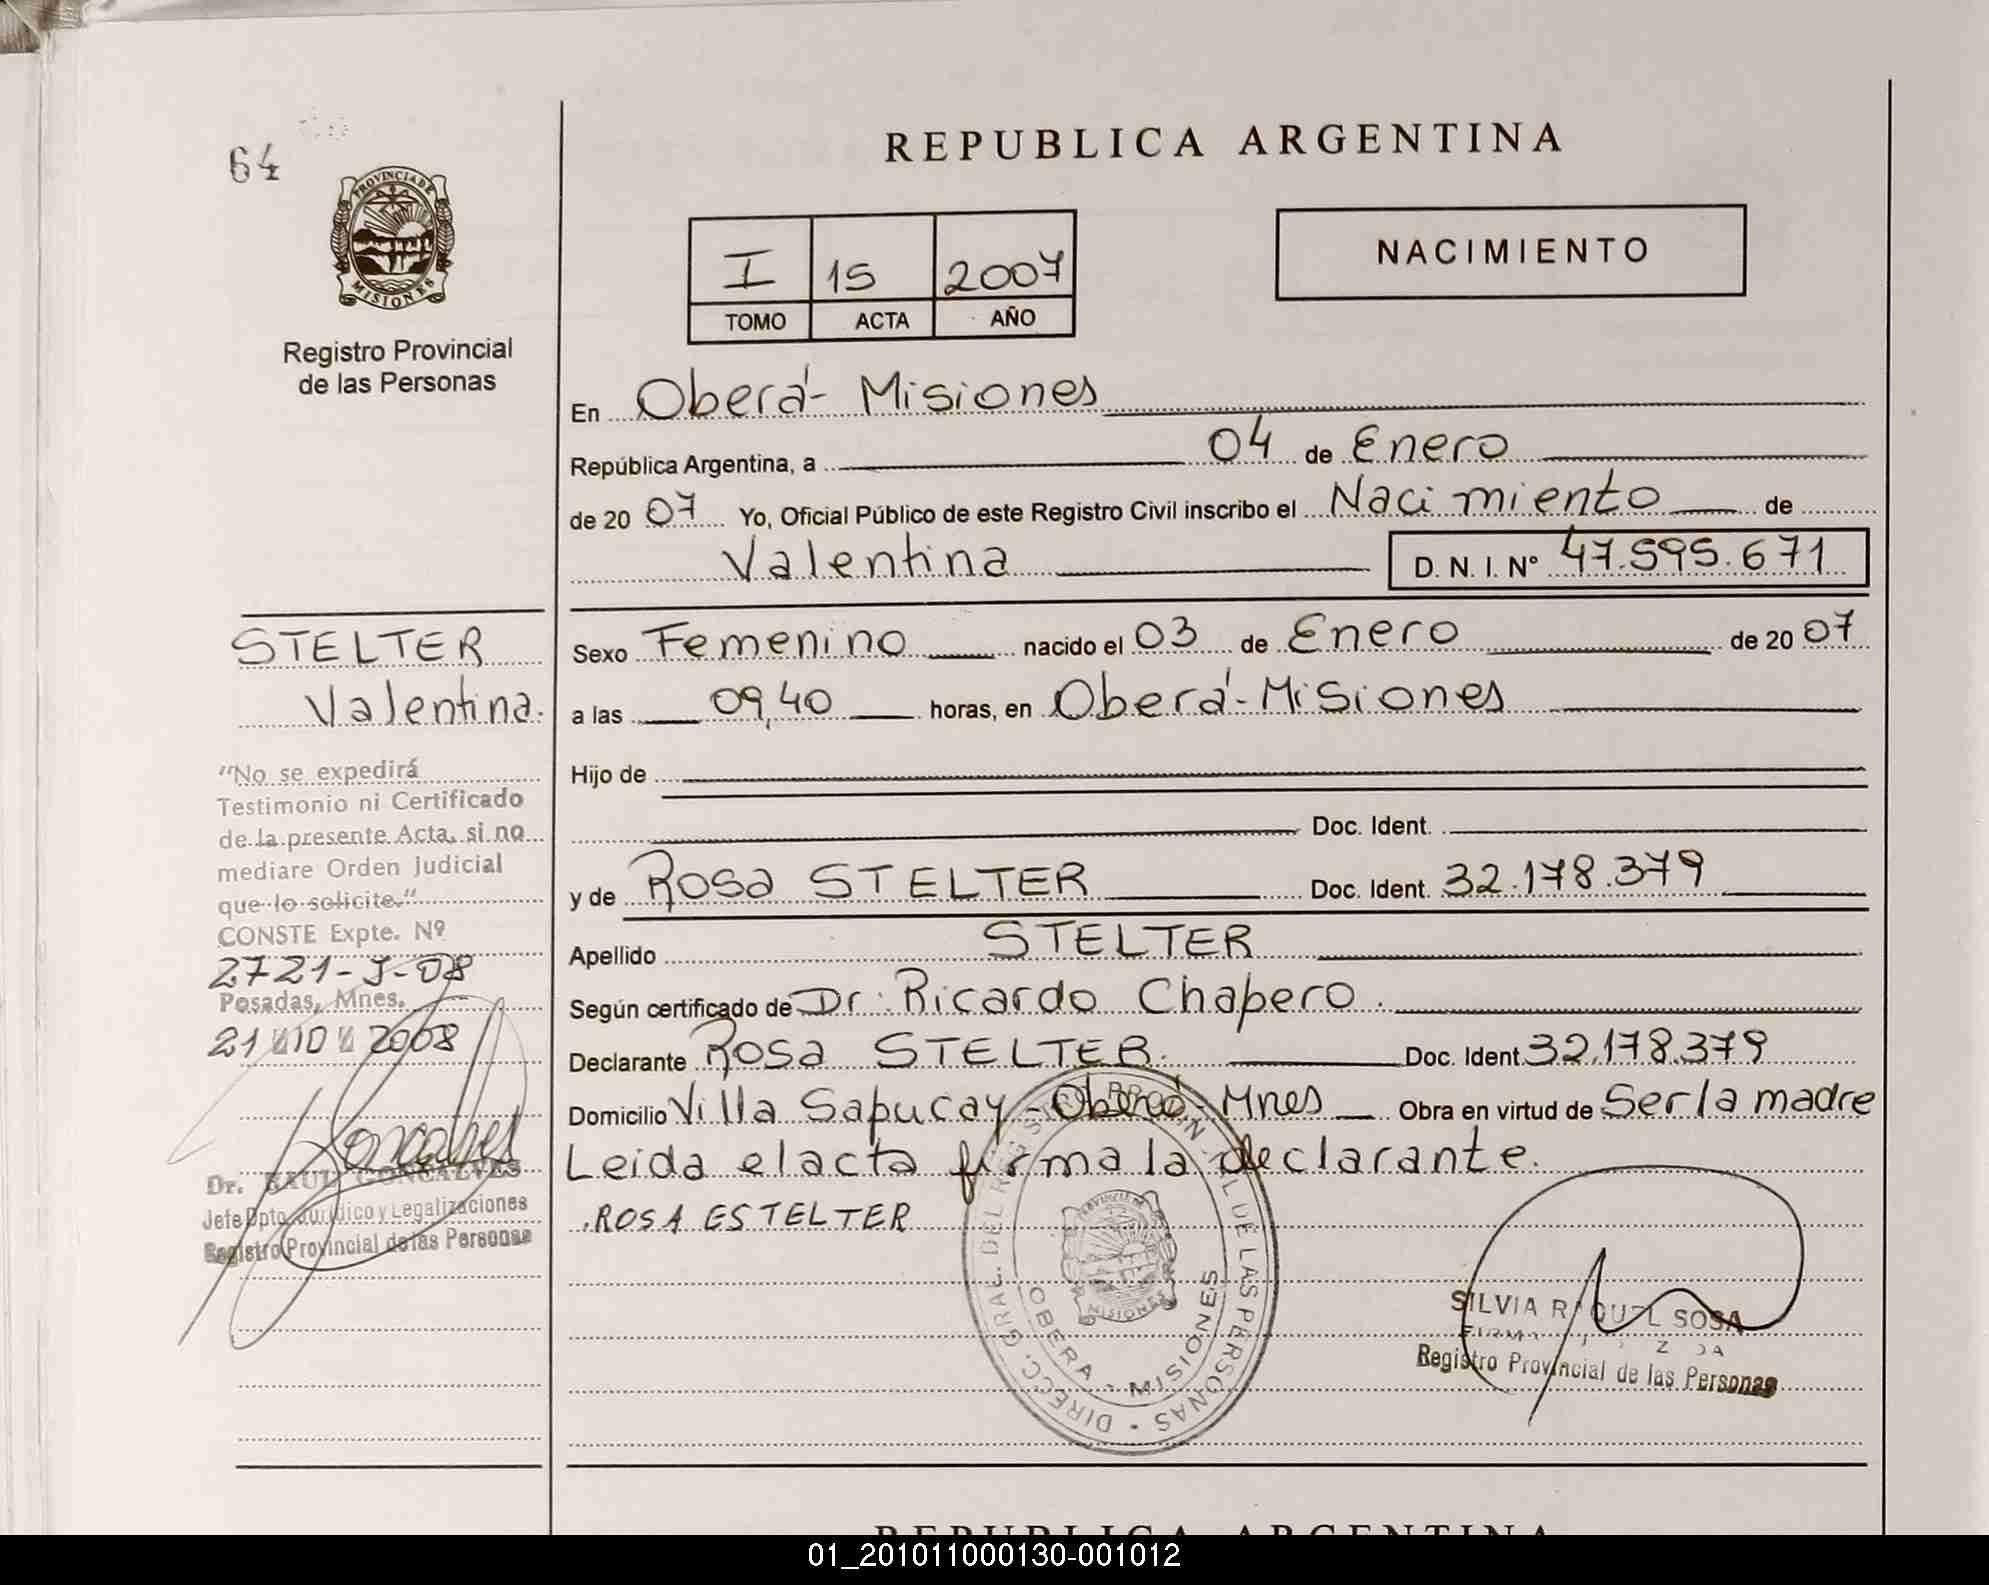 64
PROVINCIA DE
MISIONES
Registro Provincial
de las Personas
REPUBLICA ARGENTINA
I 15 2007
TOMO ACTA AÑO
NACIMIENTO
En Oberá - Misiones
República Argentina, a 04 de Enero
de 20 07 Yo, Oficial Público de este Registro Civil inscribo el Nacimiento de
Valentina D. N. I. N° 47.595.671
STELTER
Valentina.
"No se expedirá
Testimonio ni Certificado
de la presente Acta, si no
mediare Orden Judicial
que lo solicite."
CONSTE Expte. Nº
2721-J-08
Posadas, Mnes.
21 2008
Dr. RAUL GONCALVES
Jefe Dpto. Jurídico y Legalizaciones
Registro Provincial de las Personas
Sexo Femenino nacido el 03 de Enero de 20 07
a las 09,40 horas, en Oberá - Misiones
Hijo de
Doc. Ident.
y de Rosa STELTER Doc. Ident. 32.178.379
Apellido STELTER
Según certificado de Dr. Ricardo Chapero.
Declarante Rosa STELTER. Doc. Ident. 32.178.379
Domicilio Villa Sapucay - Oberá - Mnes Obra en virtud de Ser la madre
Leida el acta firma la declarante.
ROSA ESTELTER
DIRECC. GRAL. DEL REGISTRO PROVINCIAL DE LAS PERSONAS
PROVINCIA DE
MISIONES
OBERA - MISIONES
SILVIA RAQUEL SOSA
Registro Provincial de las Personas
REPUBLICA ARGENTINA
01_201011000130-001012